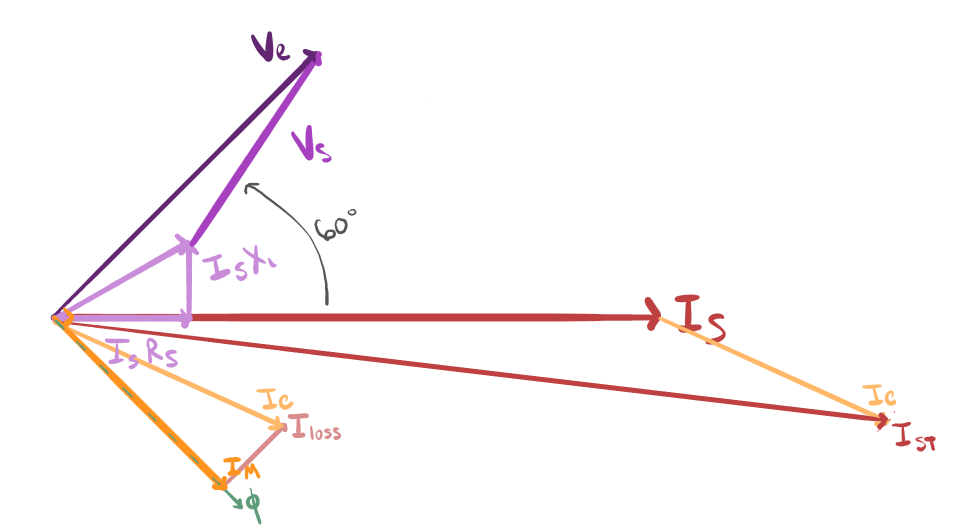 Ve
Vs
60°
IsXL
Is
IsRs
Ic
Iloss
Ic
IST
IM
ϕ